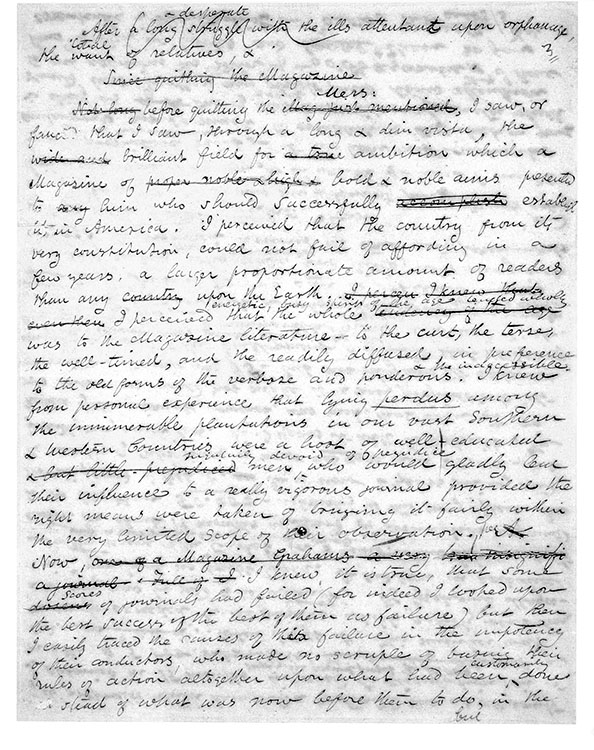 & desperate
After a long struggle with the ills attendant upon orphanage, 3
the total want of relatives, &
Since quitting the Magazine
Mess:
Not long before quitting the Mag. just mentioned, I saw, or
fancied that I saw, through a long & dim vista, the
wide and brilliant field for a true ambition which a
Magazine of proper noble & high & bold & noble aims presented
to any him who should successfully accomplish establish
it, in America. I perceived that the country from its
very constitution, could not fail of affording in a
few years, a larger proportionate amount of readers
than any country upon the Earth. I percei I knew that
energetic, busy spirit of the age tended wholly
even then I perceived that the whole tendency of the age
was to the Magazine literature — to the curt, the terse,
the well-timed, and the readily diffused, in preference
& the inaccessible
to the old forms of the verbose and ponderous. I knew
from personal experience that lying perdus among
the innumerable plantations in our vast Southern
& Western Countries were a host of well-educated
singularly devoid of prejudice
& but little prejudiced men, who would gladly lend
their influence to a really vigorous journal provided the
right means were taken of bringing it fairly within
the very limited scope of their observation.
Now, one of a Magazine Grahams a very
a journal full of I. I knew, it is true, that some
Scores
dozens of journals had failed (for indeed I looked upon
the best success of the best of them as failure) but then
I easily traced the causes of their failure in the impotency
of their conductors, who made no scruple of basing their
customarily
rules of action altogether upon what had been done
in stead of what was now before them to do, in the
but